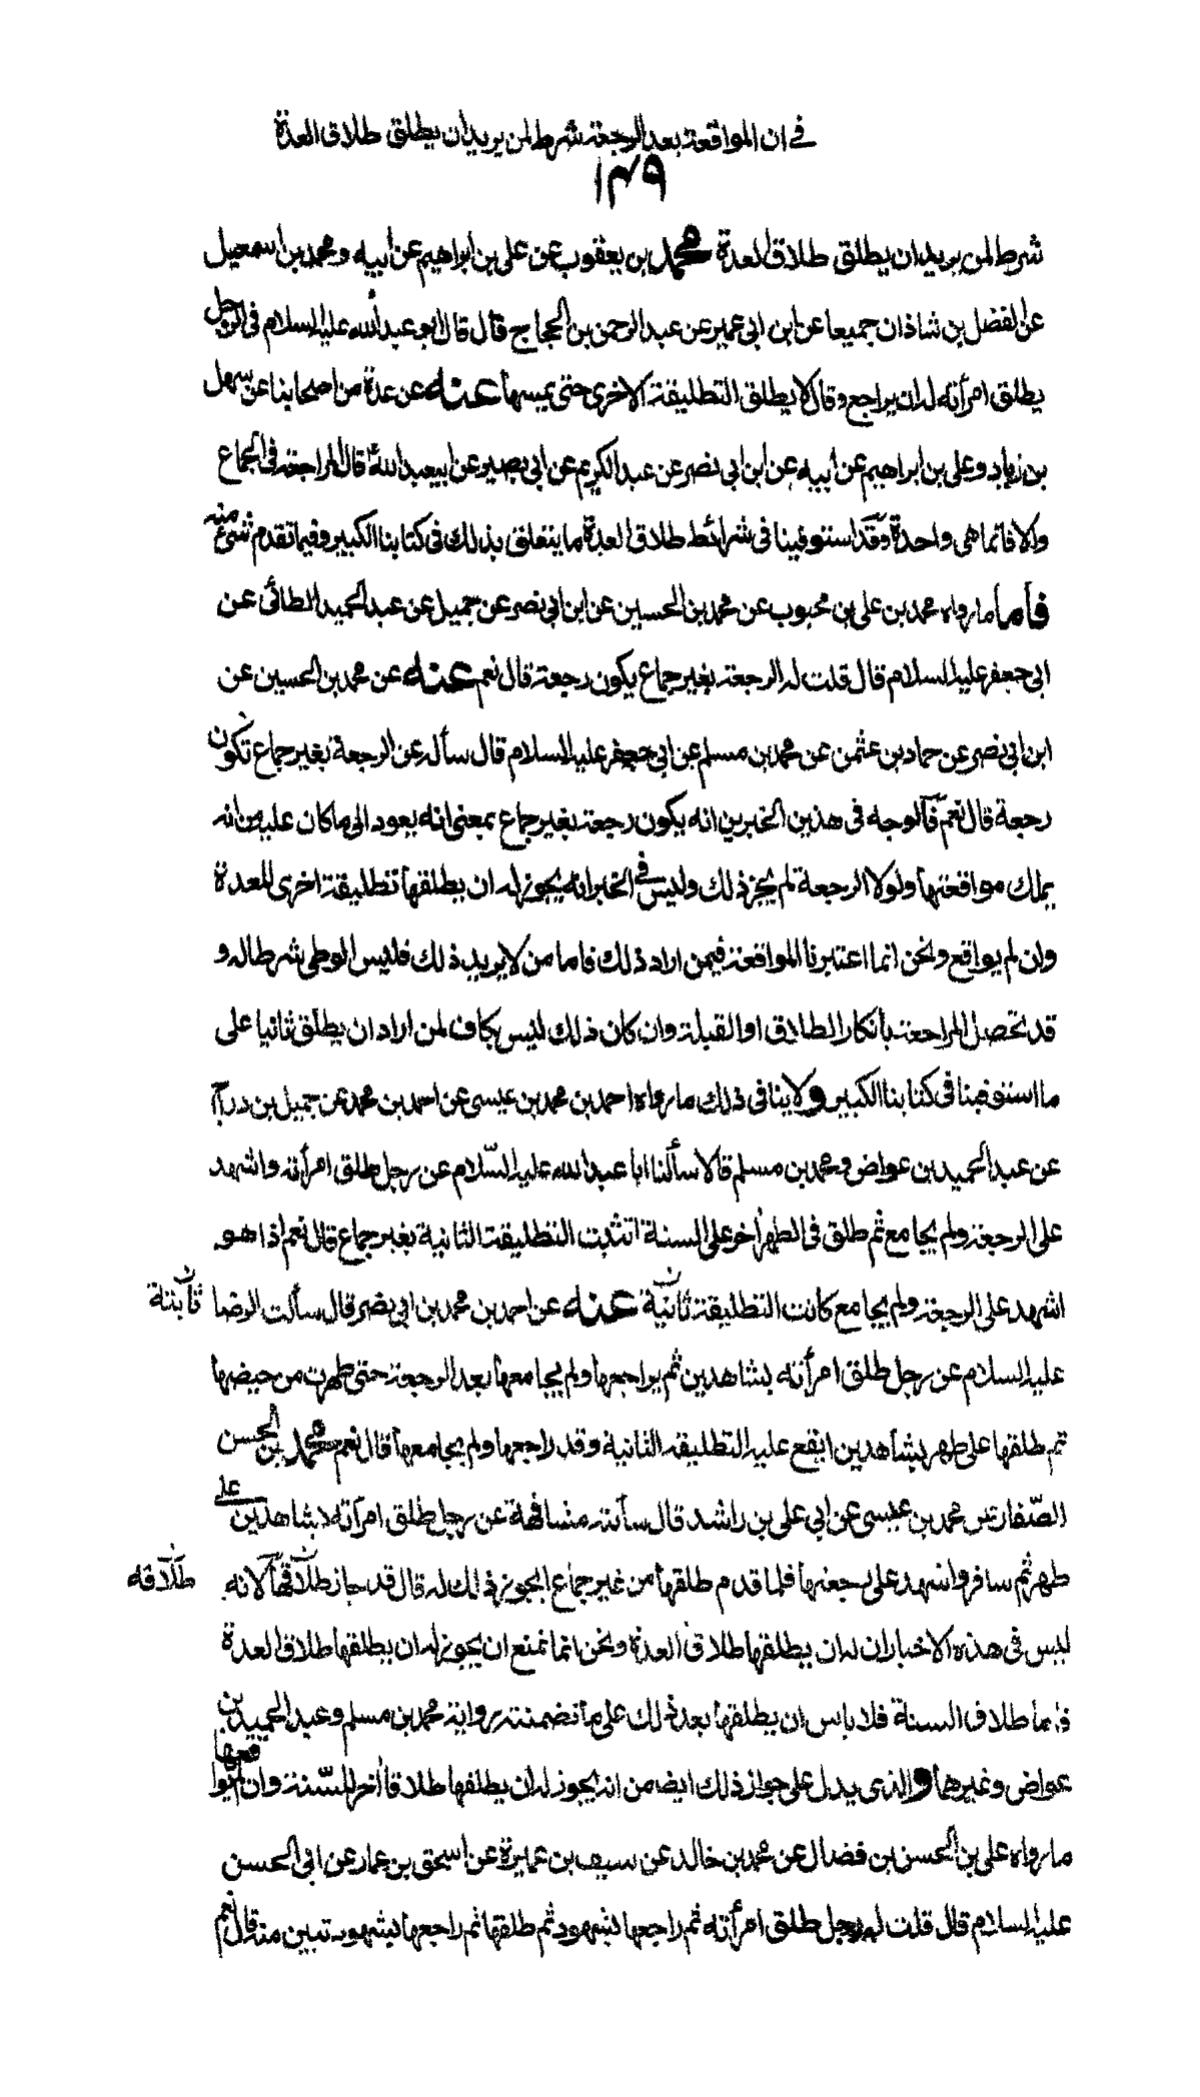 في ان المواقعة بعد الرجعة شرط لمن يريد ان يطلق طلاق العدة
١٤٩
شرط لمن يريد ان يطلق طلاق العدة محمد بن يعقوب عن علي بن ابراهيم عن ابيه ومحمد بن اسمعيل
عن الفضل بن شاذان جميعا عن ابن ابي عمير عن عبد الرحمن بن الحجاج قال قال ابو عبد الله عليه السلام في الرجل
يطلق امرأته له ان يراجع وقال لا يطلق التطليقة الاخرى حتى يمسها عنه عن عدة من اصحابنا عن سهل
بن زياد وعلي بن ابراهيم عن ابيه عن ابن ابي نصر عن عبد الكريم عن ابي بصير عن ابيعبد الله قال المراجعة في الجماع
والا فانما هي واحدة وقد استوفينا في شرائط طلاق العدة ما يتعلق بذلك في كتابنا الكبير وفيما تقدم شئ منه
فأما ما رواه محمد بن علي بن محبوب عن محمد بن الحسين عن ابن ابي نصر عن جميل عن عبد الحميد الطائي عن
ابي جعفر عليه السلام قال قلت له الرجعة بغير جماع يكون رجعة قال نعم عنه عن محمد بن الحسين عن
ابن ابي نصر عن حماد بن عثمن عن محمد بن مسلم عن ابي جعفر عليه السلام قال سأله عن الرجعة بغير جماع تكون
رجعة قال نعم فالوجه في هذين الخبرين انه يكون رجعة بغير جماع بمعنى انه يعود الى ما كان عليه من انه
يملك مواقعتها ولولا الرجعة لم يجز ذلك وليس في الخبر انه يجوز له ان يطلقها تطليقة اخرى للعدة
وان لم يواقع ونحن انما اعتبرنا المواقعة فيمن اراد ذلك فاما من لا يريد ذلك فليس الوطي شرطا له و
قد تحصل المراجعة بانكار الطلاق او القبلة وان كان ذلك ليس بكاف لمن اراد ان يطلق ثانيا على
ما استوفينا في كتابنا الكبير ولا ينافي ذلك ما رواه احمد بن محمد بن عيسى عن احمد بن محمد عن جميل بن دراج
عن عبد الحميد بن عواض ومحمد بن مسلم قالا سألنا ابا عبد الله عليه السّلام عن رجل طلق امرأته واشهد
على الرجعة ولم يجامع ثم طلق في الطهر اخر على السنة اتثبت التطليقة الثانية بغير جماع قال نعم اذا هو
اشهد على الرجعة ولم يجامع كانت التطليقة ثانية عنه عن احمد بن محمد بن ابي نصر قال سألت الرضا
ثابتة
عليه السلام عن رجل طلق امرأته بشاهدين ثم يراجعها ولم يجامعها بعد الرجعة حتى طهرت من حيضها
ثم طلقها على طهر بشاهدين ايقع عليه التطليقة الثانية وقد راجعها ولم يجامعها قال نعم محمد بن الحسن
الصّفار عن محمد بن عيسى عن ابي علي بن راشد قال سألته مشافهة عن رجل طلق امرأته بشاهدين على
طهر ثم سافر واشهد على رجعتها فلما قدم طلقها من غير جماع ايجوز ذلك له قال قد جاز طلاقها لانه
طلاقه
ليس في هذه الاخبار ان له ان يطلقها طلاق العدة ونحن انما نمنع ان يجوز له ان يطلقها طلاق العدة
فاما طلاق السنة فلا باس ان يطلقها بعد ذلك على ما تضمنته رواية محمد بن مسلم وعبد الحميد بن
عواض وغيرهما والذي يدل على جواز ذلك ايضا من انه يجوز له ان يطلقها طلاقا اخر للسّنة وان لم يواقعها
ما رواه علي بن الحسن بن فضال عن محمد بن خالد عن سيف بن عميرة عن اسحق بن عمار عن ابي الحسن
عليه السلام قال قلت له رجل طلق امرأته ثم راجعها بشهود ثم طلقها ثم راجعها بشهود تبين منه قال نعم